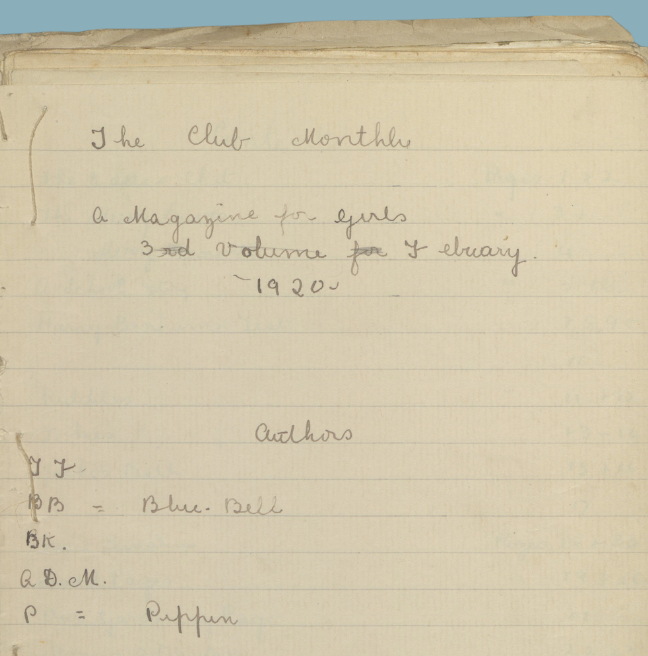 The Club Monthly
A Magazine for Girls
3rd Volume for Febuary.
1920
Authors
BB = Blue-Bell
BK.
Q D.M.
P = Peppen